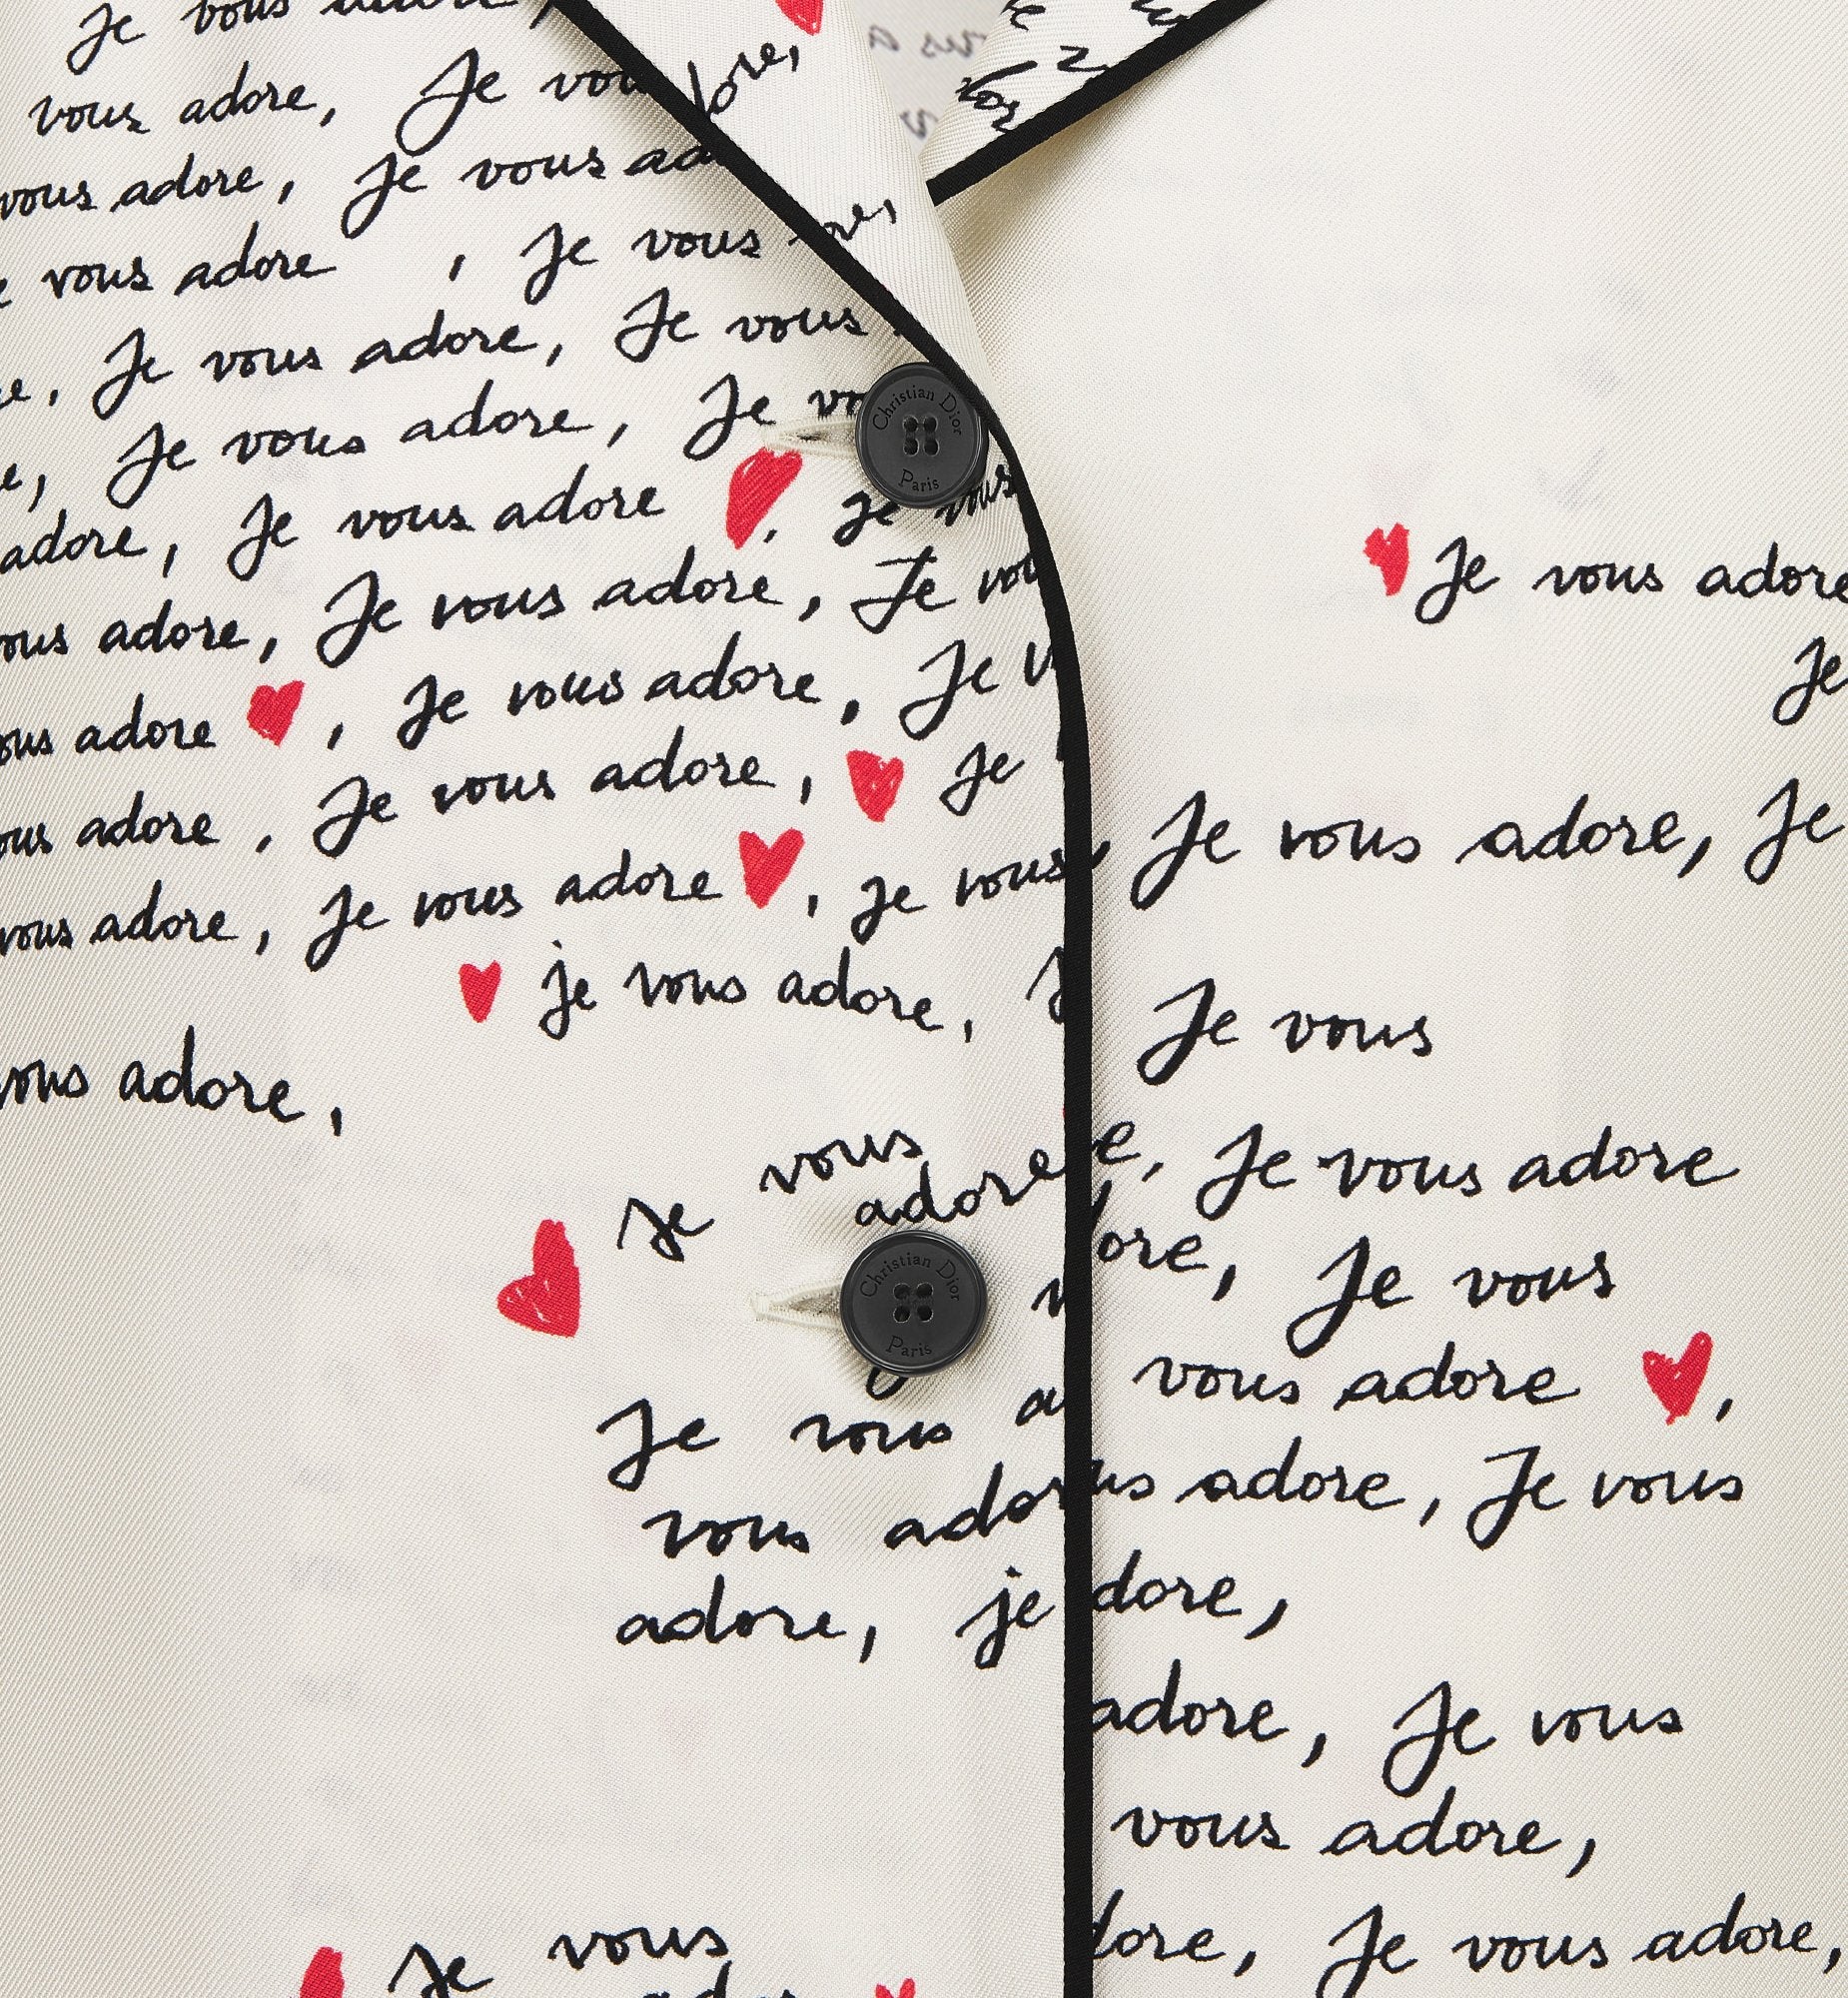 Je vous adore,
vous adore, Je
dore,
vous adore, Je vous
vous adore , Je vous
Je vous adore, Je vous
Je vous adore, Je
Christian Dior
Paris
adore, Je vous adore , je vous
adore, Je vous adore, Je
adore , Je vous adore, Je
adore , Je vous adore, je
vous adore, Je vous adore , je vous
je vous adore,
vous adore,
Je vous
adore
Christian Dior
Paris
Je vous
vous
adore, je
Je vous
Je vous adore
Je
Je vous adore, Je
Je vous
Je vous adore
Je vous
vous adore ,
adore, Je vous
adore, Je vous
vous adore,
Je vous adore,